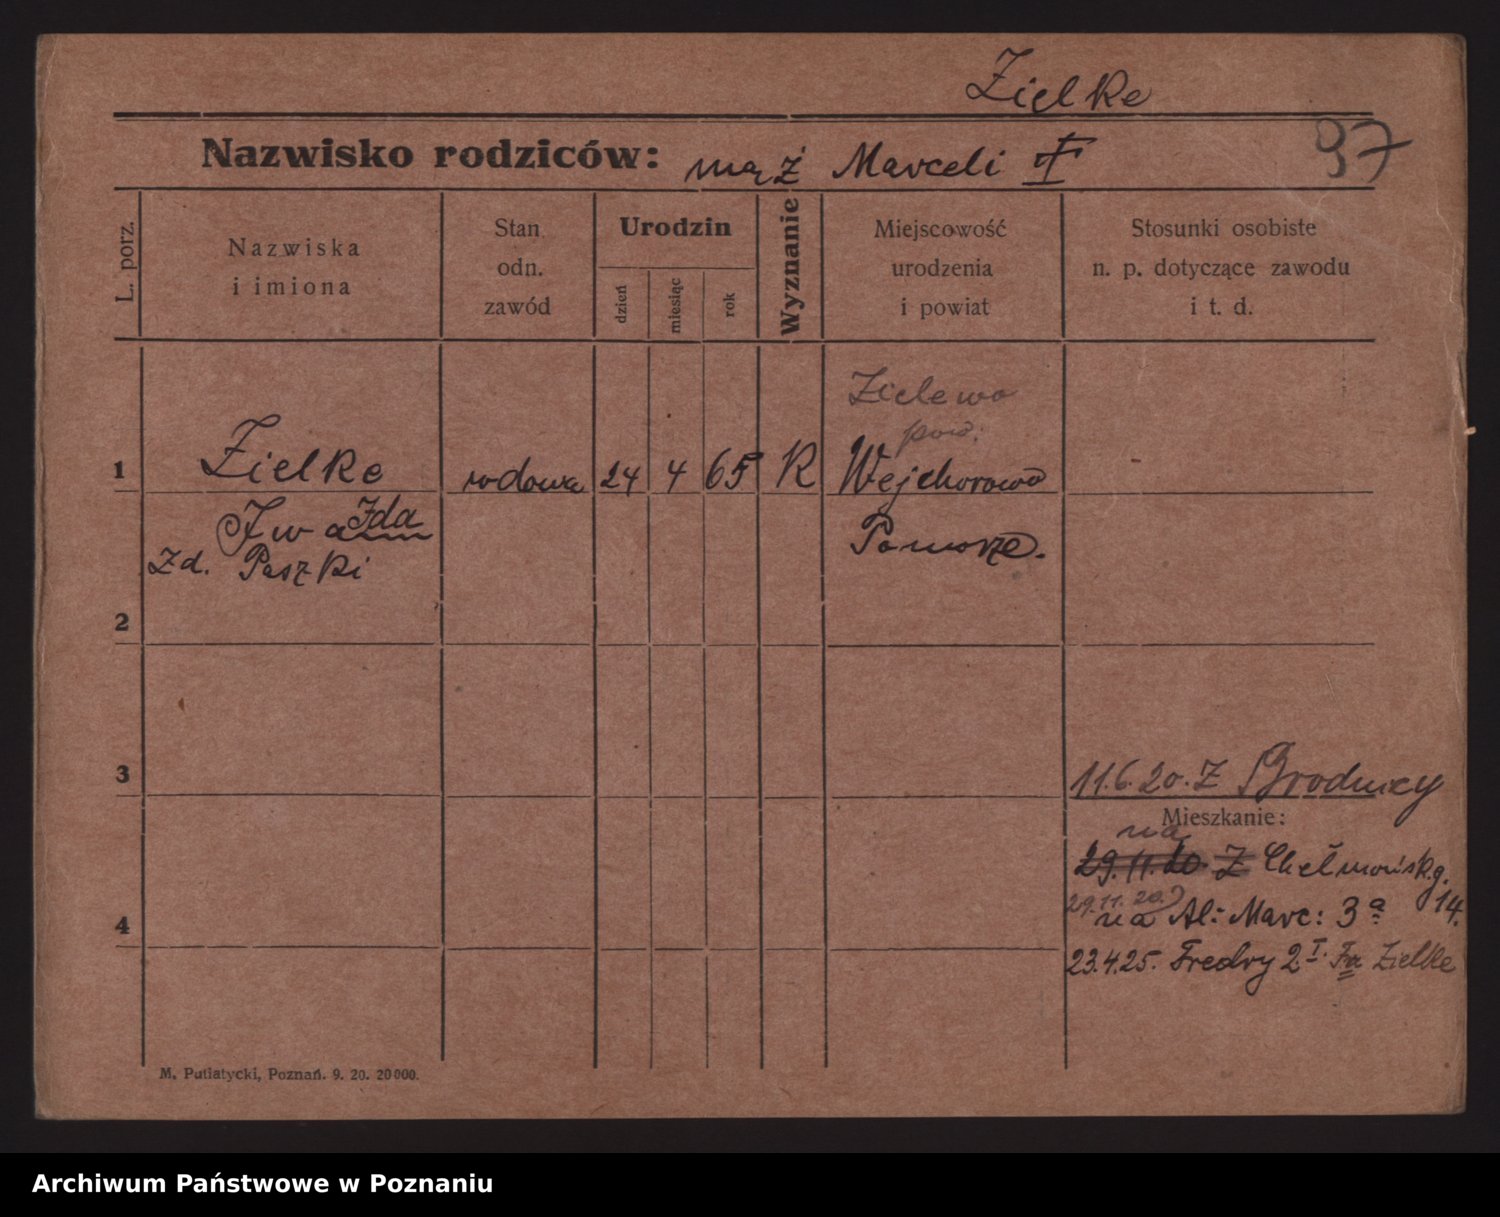 Zielke
97
Nazwisko rodziców: mąż Marceli
L. porz.
Nazwiska
i imiona
Stan
odn.
zawód
Urodzin
dzień
miesiąc
rok
Wyznanie
Miejscowość
urodzenia
i powiat
Stosunki osobiste
n. p. dotyczące zawodu
i t. d.
Zielewo
pow.
1 Zielke wdowa 24 4 65 R Wejcherowo
Ida
Zd. Paszki
Pomorze.
2
3
11.6.20. Z Brodnicy
Mieszkanie:
na
29.11.20 Z Chełmońskg.
14.
29.11.20
na Al: Marc: 3a
4
23.4.25. Fredry 2 I. Fa Zielke
M. Putiatycki, Poznań. 9. 20. 20000.
Archiwum Państwowe w Poznaniu